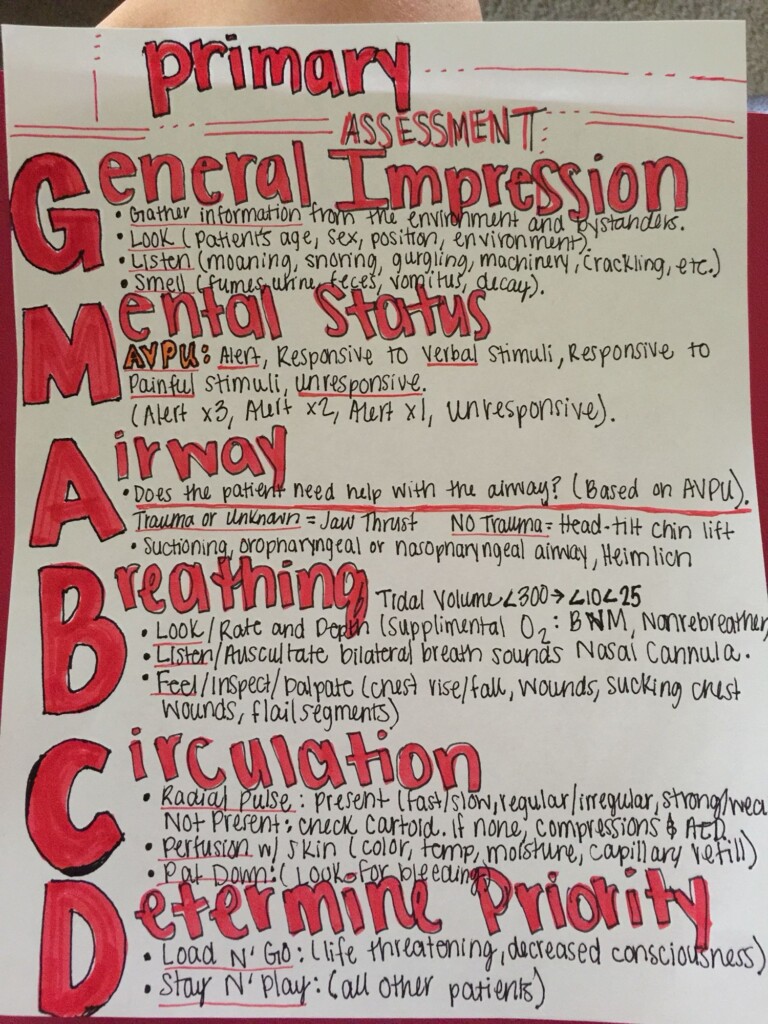 primary
ASSESSMENT
General Impression
• Gather information from the environment and bystanders.
• Look (patient's age, sex, position, environment).
• Listen (moaning, snoring, gurgling, machinery, crackling, etc.)
• Smell (fumes, urine, feces, vomitus, decay).
Mental Status
AVPU: Alert, Responsive to Verbal Stimuli, Responsive to
Painful stimuli, unresponsive.
(Alert x3, Alert x2, Alert x1, unresponsive).
Airway
• Does the patient need help with the airway? (Based on AVPU).
Trauma or unknown = Jaw Thrust NO Trauma = Head-tilt chin lift
• Suctioning, oropharyngeal or nasopharyngeal airway, Heimlich
Breathing Tidal Volume <300→<10<25
• Look/Rate and Depth (Supplimental O₂: BVM, Nonrebreather,
• Listen/Auscultate bilateral breath sounds Nasal Cannula.
• Feel/Inspect/Palpate (chest rise/fall, wounds, sucking chest
wounds, flail segments)
Circulation
• Radial Pulse: present (fast/slow, regular/irregular, strong/wea
Not Present: check cartoid. if none, compressions & AED
• Perfusion w/ skin (color, temp, moisture, capillary refill)
• Pat Down: (Look for bleeding)
Determine Priority
• Load N' Go: (life threatening, decreased consciousness)
• Stay N' Play: (all other patients)